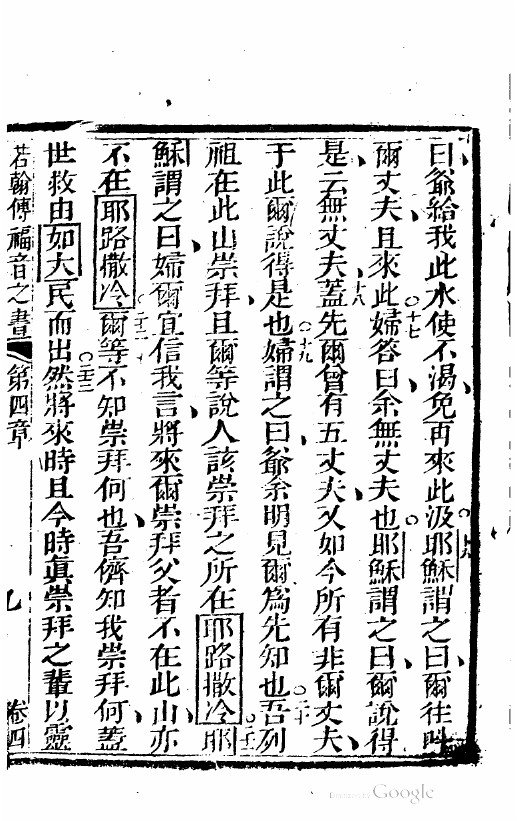 曰爺給我此水使不渴免再來此汲○十六耶穌謂之曰爾往呌
爾丈夫且來此○十七婦答曰余無丈夫也○耶穌謂之曰爾說得
是云無丈夫○十八蓋先爾曾有五丈夫又如今所有非爾丈夫
于此爾說得是也○十九婦謂之曰爺余明見爾為先知也○二十吾列
祖在此山崇拜且爾等說人該崇拜之所在耶路撒冷○二十一耶
穌謂之曰婦爾宜信我言將來爾崇拜父者不在此山亦
不在耶路撒冷○二十二爾等不知崇拜何也吾儕知我崇拜何蓋
世救由如大民而出○二十三然將來時且今時眞崇拜之輩以靈
若翰傳福音之書 第四章 九 卷四
Digitized by Google